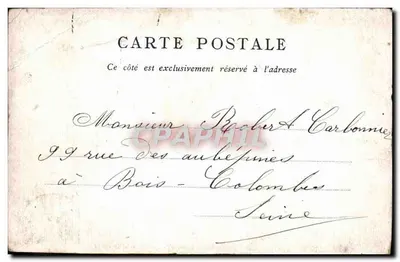 CARTE POSTALE
Ce côté est exclusivement réservé à l'adresse
Monsieur Robert Carbonnier
99 rue des aubépines
CPAPHIL
à Bois - Colombes
Seine